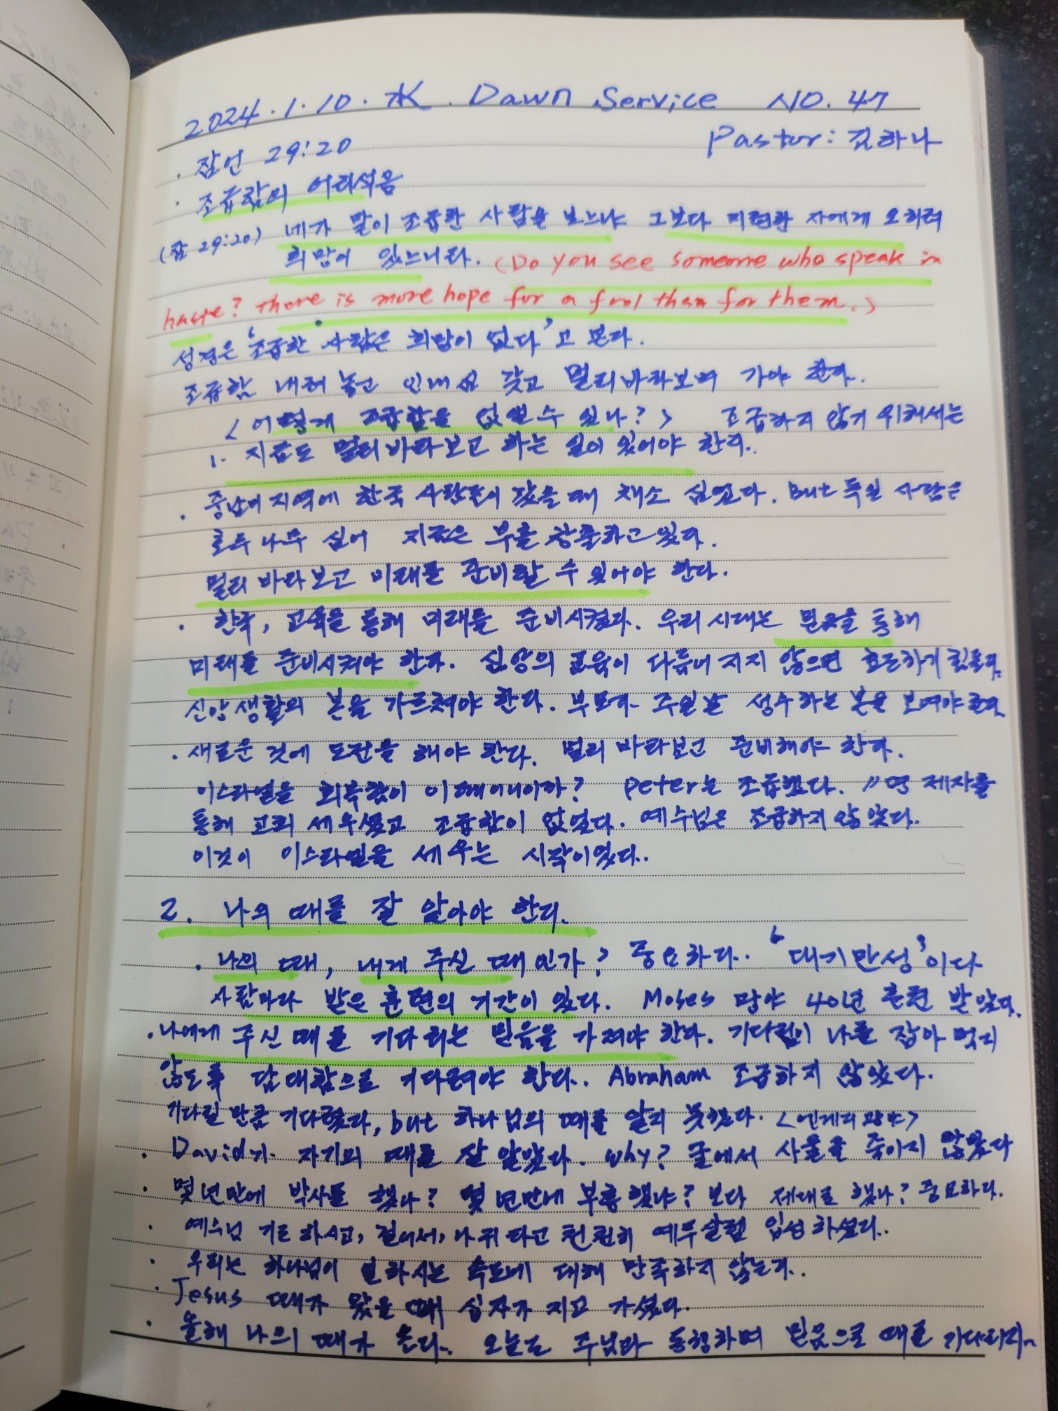 2024.1.10.水. Dawn Service NO.47
Pastor: 김하나
· 잠언 29:20
· 조급함의 어리석음
(잠 29:20) 네가 말이 조급한 사람을 보느냐 그보다 미련한 자에게 오히려
희망이 있느니라. (Do you see someone who speak in
haste? there is more hope for a fool than for them.)
성경은 '조급한 사람은 희망이 없다'고 본다.
조급함 내려놓고 인내심 갖고 멀리바라보며 가야 한다.
<어떻게 조급함을 없앨 수 있나?> 조급하지 않기 위해서는
1. 지금도 멀리 바라보고 하는 일이 있어야 한다.
· 중남미 지역에 한국 사람들이 갔을 때 채소 심었다. But 독일 사람은
호두나무 심어 지금은 부를 창출하고 있다.
멀리 바라보고 미래를 준비할 수 있어야 한다.
· 한국, 교육을 통해 미래를 준비시켰다. 우리 시대는 믿음을 통해
미래를 준비시켜야 한다. 신앙의 교육이 다듬어 지지 않으면 혼란하기
신앙생활의 본을 가르쳐야 한다. 부모가 주일날 성수하는 본을 보여야 한다
· 새로운 것에 도전을 해야 한다. 멀리 바라보고 준비해야 한다.
이스라엘을 회복함이 이 때이니이까? Peter는 조급했다. 11명 제자를
통해 교회 세우셨고 조급함이 없었다. 예수님은 조급하지 않았다.
이것이 이스라엘을 세우는 시작이었다..
2. 나의 때를 잘 알아야 한다.
· 나의 때, 내게 주신 때인가? 중요하다.. '대기만성'이다
사람마다 받은 훈련의 기간이 있다. Moses 광야 40년 훈련 받았다.
· 나에게 주신 때를 기다리는 믿음을 가져야 한다. 기다림이 나를 잡아 먹지
않도록 담대함으로 기다려야 한다.. Abraham 조급하지 않았다.
기다릴 만큼 기다렸다, but 하나님의 때를 알지 못했다. <엔게디 광야>
· David가 자기의 때를 잘 알았다. why? 굴에서 사울을 죽이지 않았다
· 몇 년만에 박사를 했나? 몇 년만에 부흥했나? 보다 제대로 했나? 중요하다.
· 예수님 기도 하시고, 걸어서, 나귀 타고 천천히 예루살렘 입성 하셨다..
· 우리는 하나님이 일하시는 속도에 대해 만족하지 않는다..
· Jesus 때가 왔을 때 십자가 지고 가셨다.
· 올해 나의 때가 온다.. 오늘도 주님과 동행하며 믿음으로 때를 기다리자~